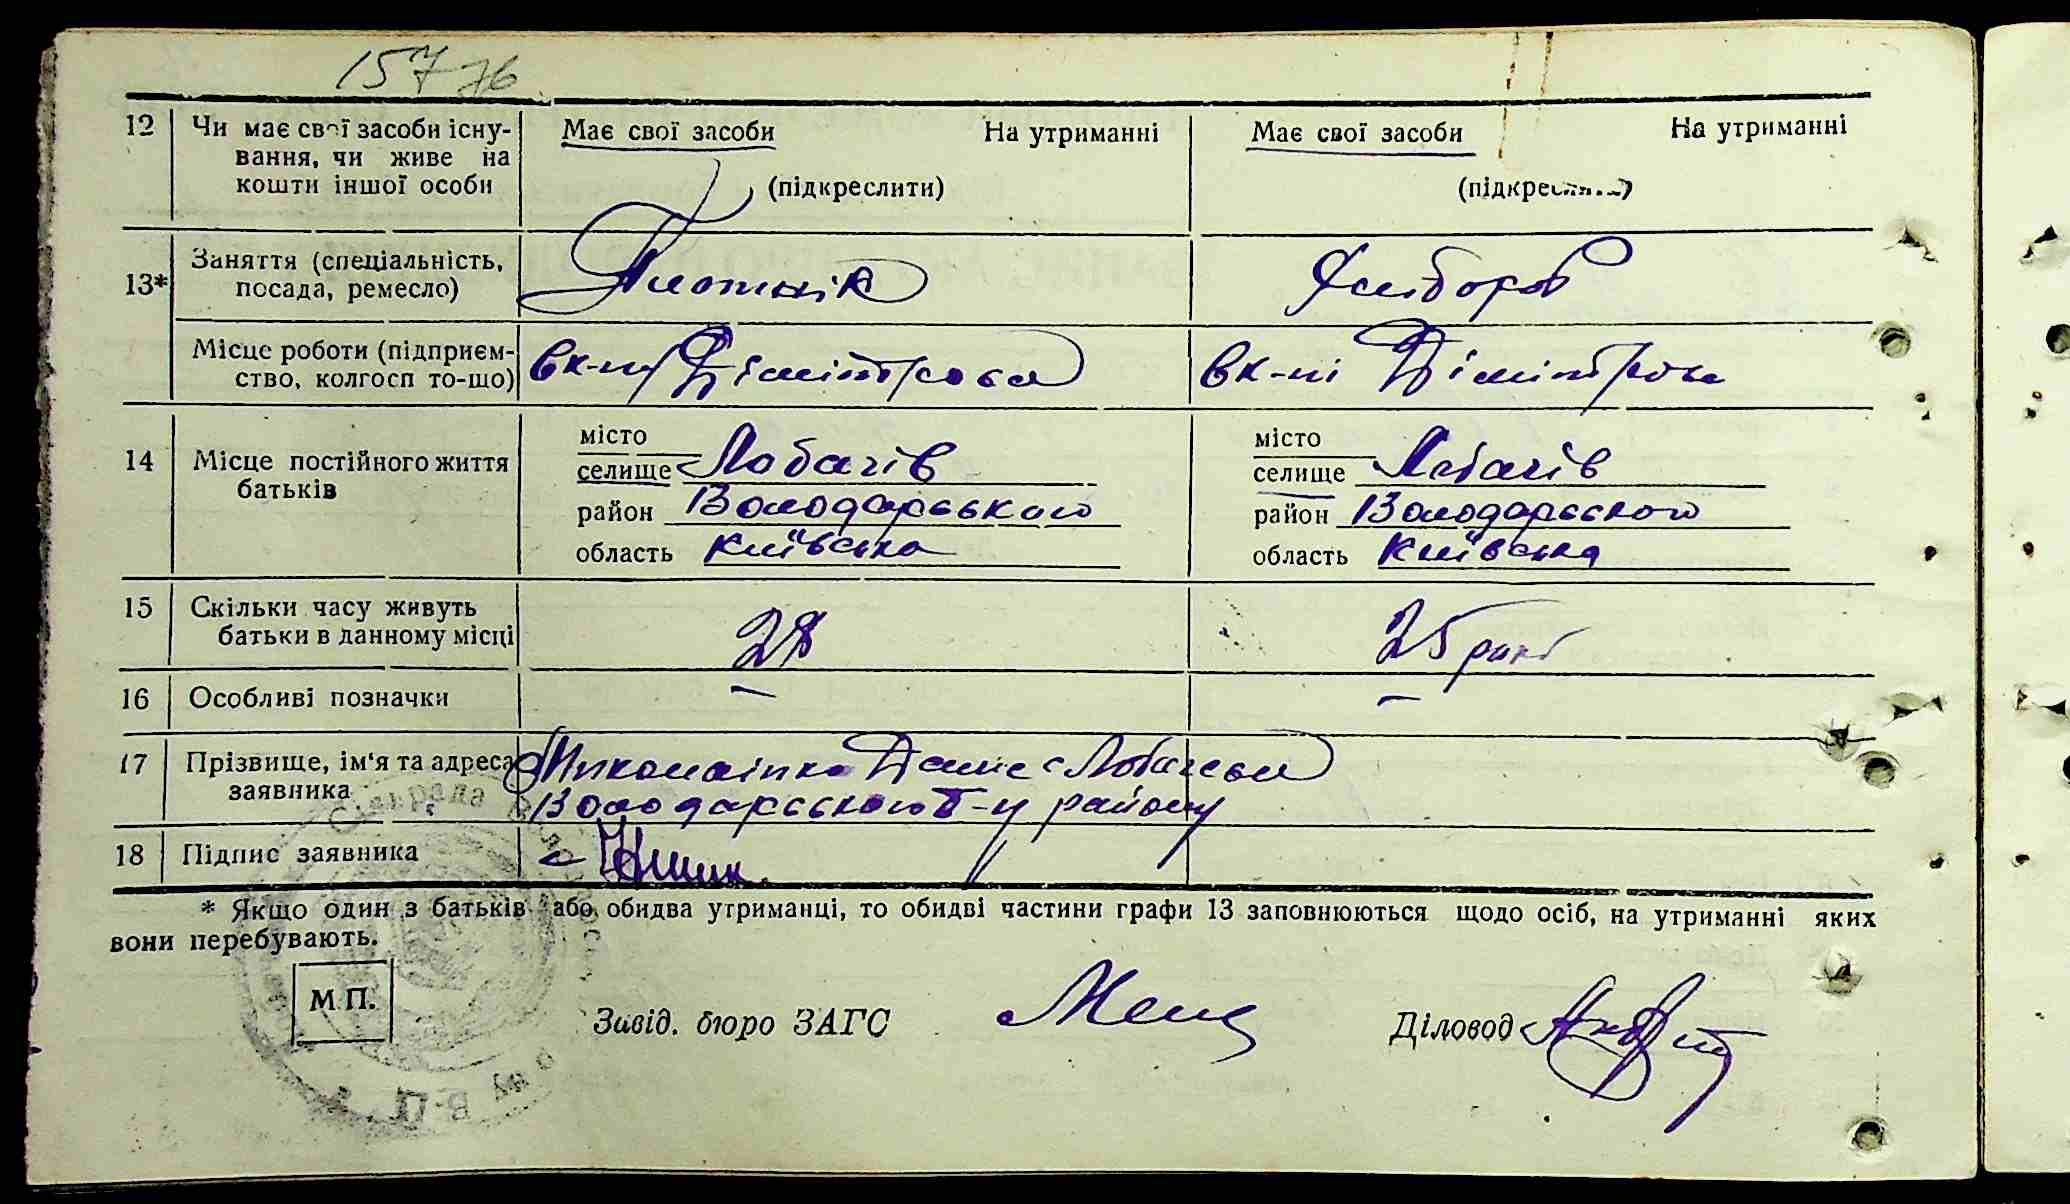 157 76
12 Чи має свої засоби існу- Має свої засоби На утриманні Має свої засоби На утриманні
вання, чи живе на
кошти іншої особи (підкреслити) (підкреслити)
Заняття (спеціальність, Плотнік Хлібороб
13* посада, ремесло)
Місце роботи (підприєм- вк-пі Дімітрова вк-пі Дімітрова
ство, колгосп то-що)
місто місто
14 Місце постійного життя селище Лобачів селище Лобачів
батьків район Володарського район Володарського
область Київська область Київська
15 Скільки часу живуть 28 25 років
батьки в данному місці
16 Особливі позначки – –
17 Прізвище, ім'я та адреса Лобачева
заявника Володарського району
18 Підпис заявника
* Якщо один з батьків або обидва утриманці, то обидві частини графи 13 заповнюються щодо осіб, на утриманні яких
вони перебувають.
М.П. Завід. бюро ЗАГС Діловод